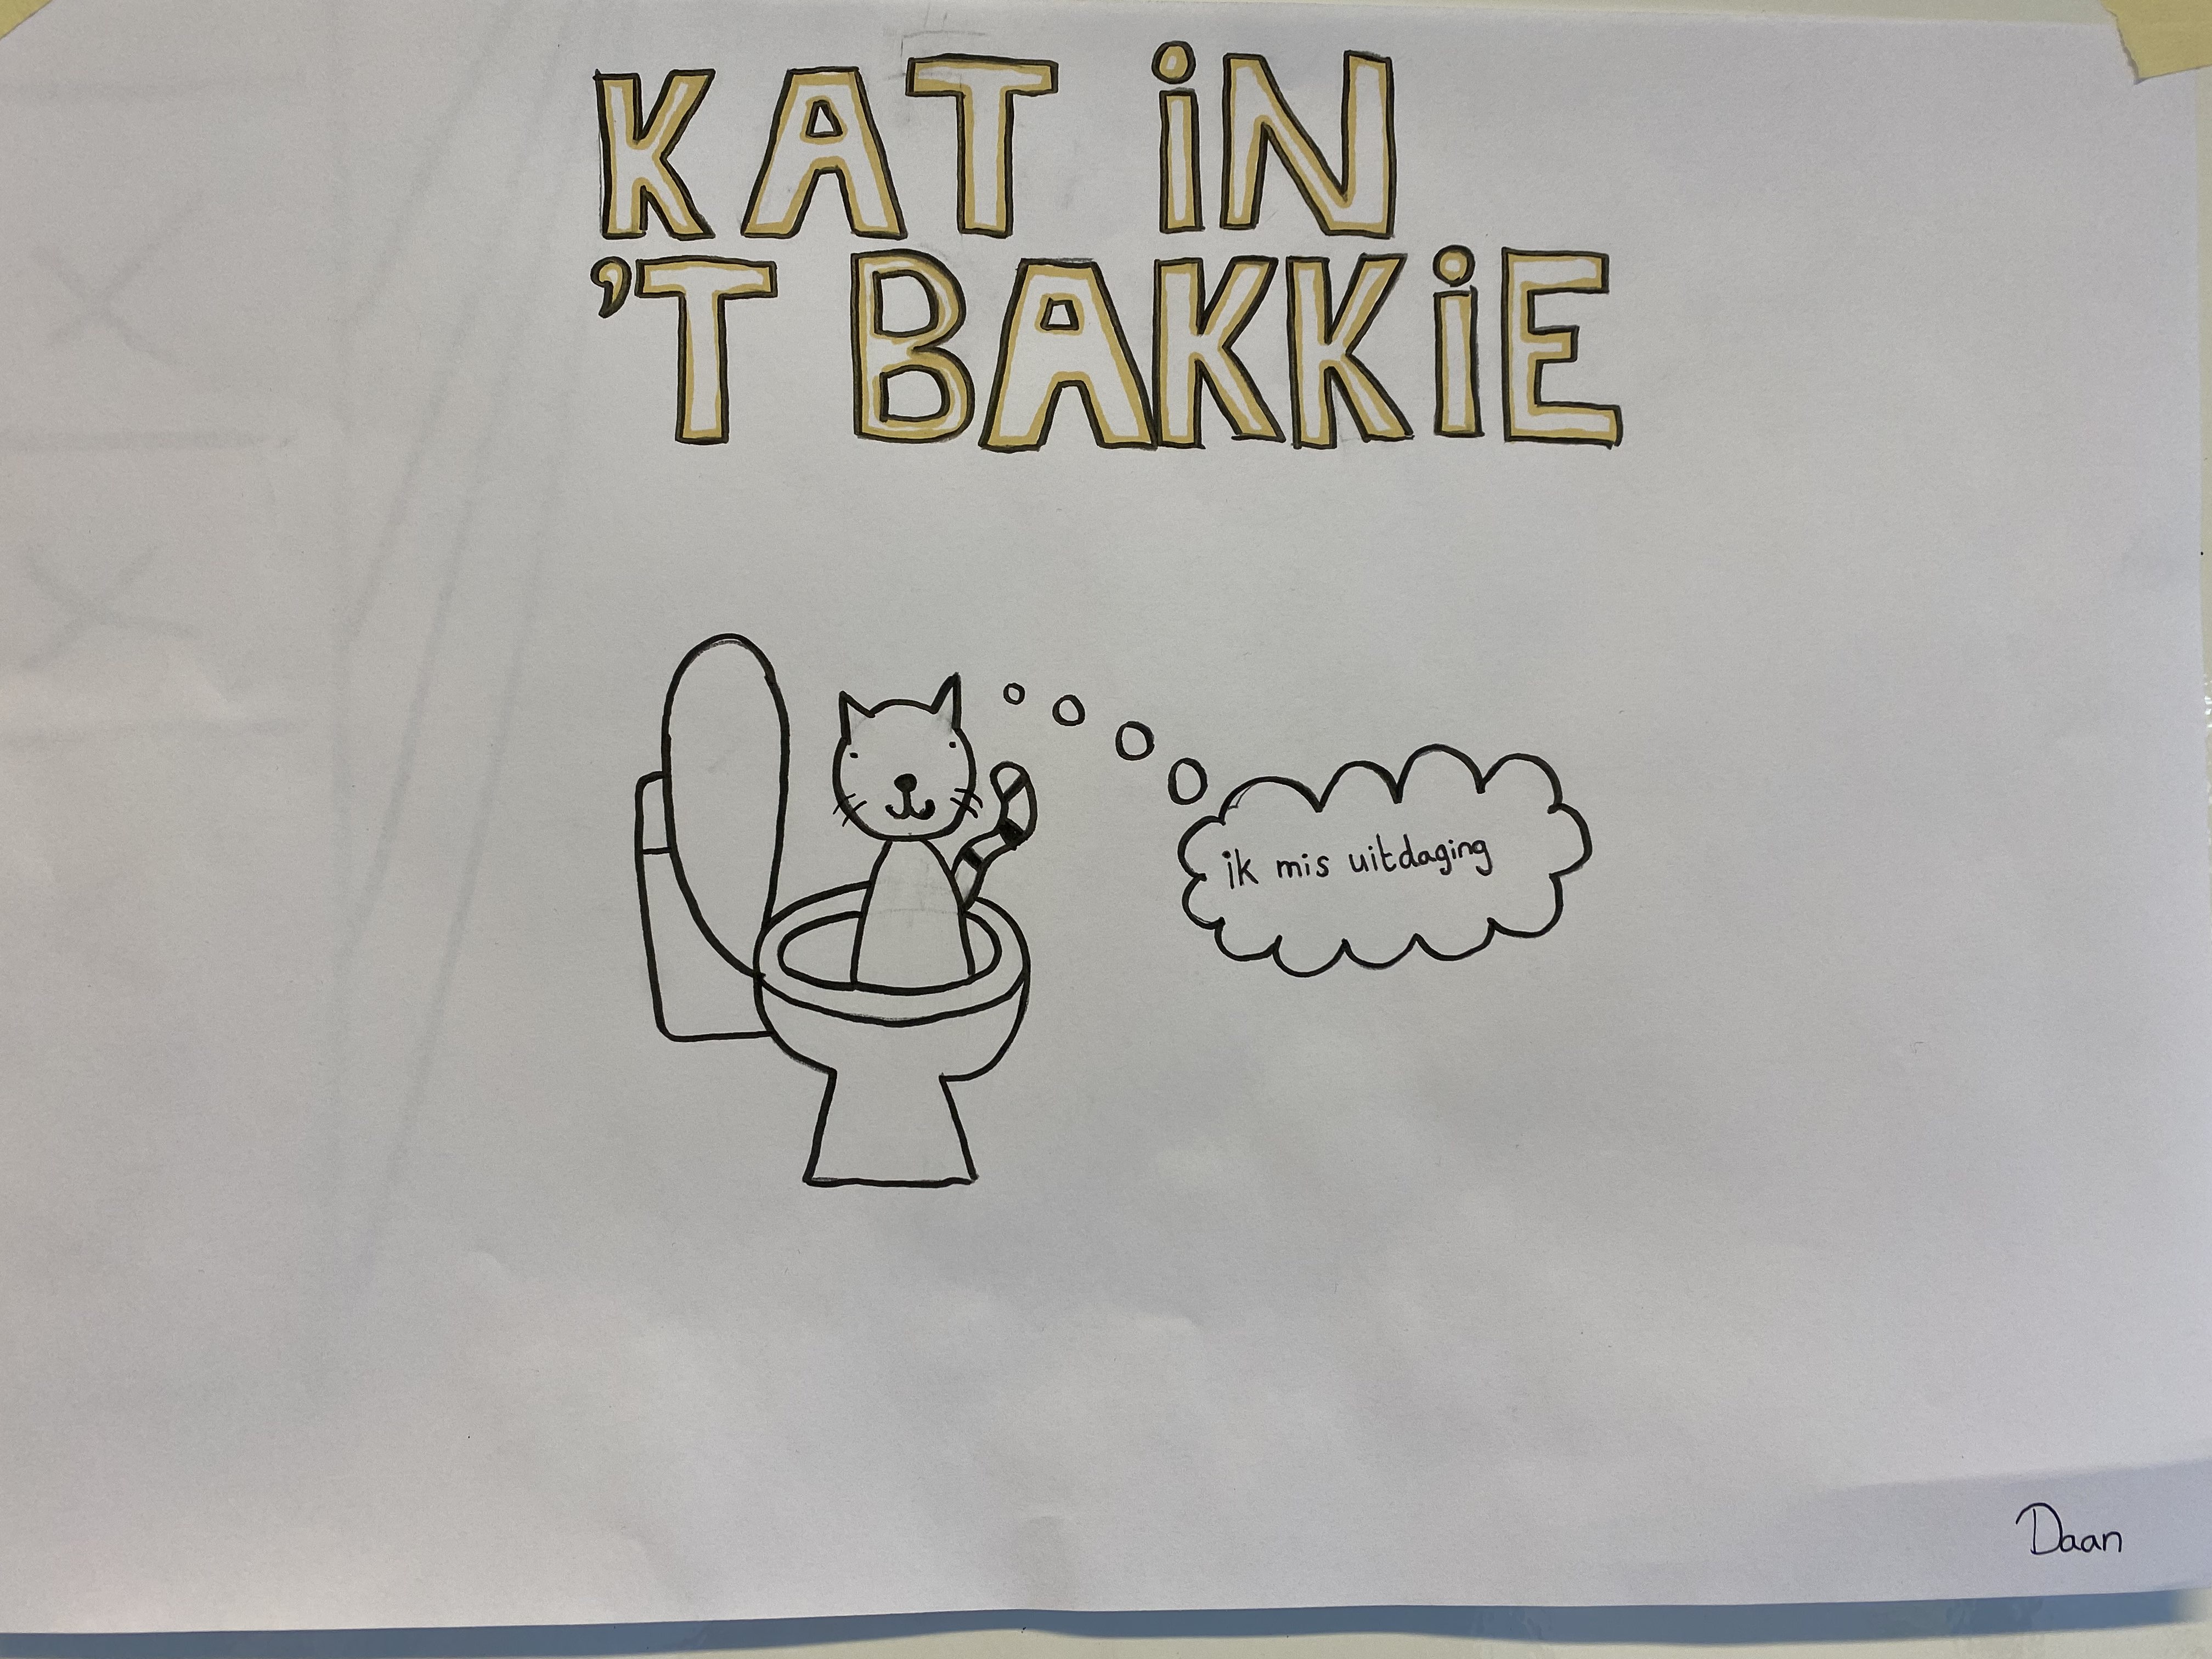 KAT iN
'T BAKKiE
ik mis uitdaging
Daan